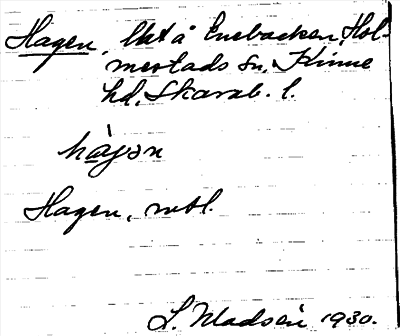 Hagen, lht å Enebacken, Hol-
mestads sn, Kinne
hd, Skarab. l.
hàgən
Hagen, mtl.
L. Madsén 1930.